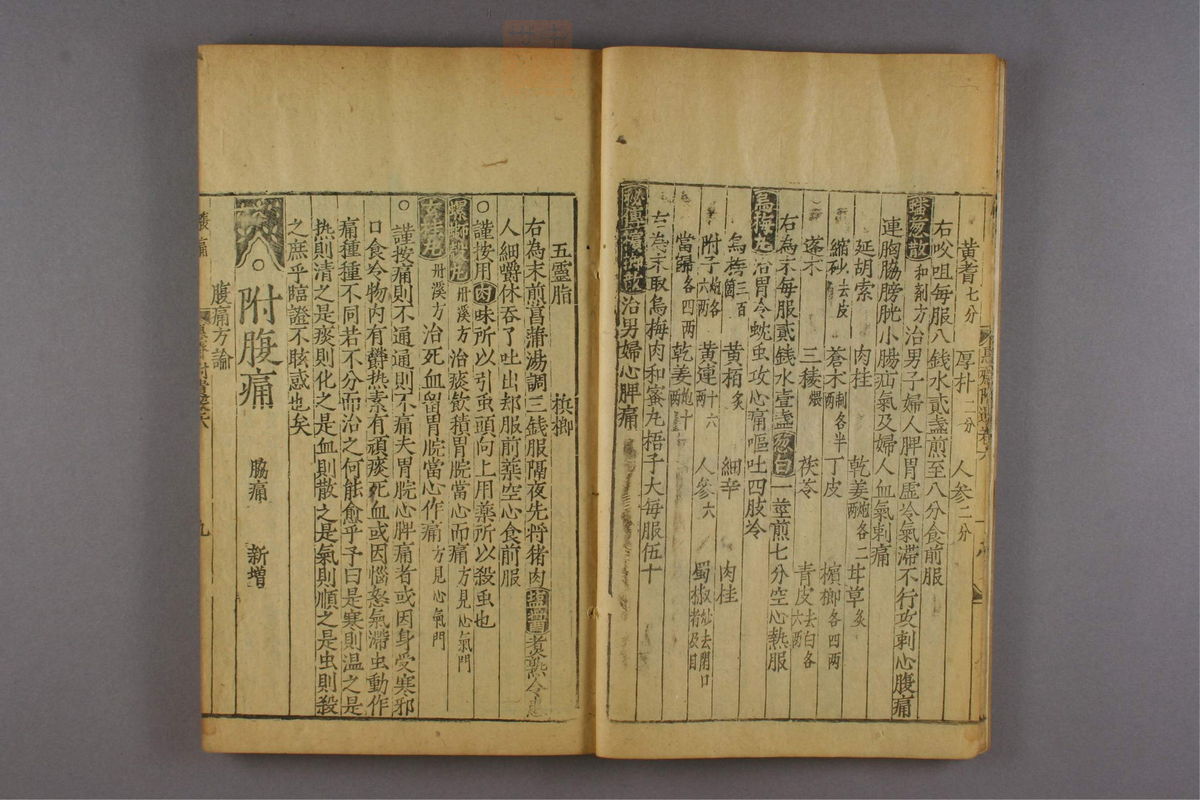 黃耆七分 厚朴二分 人參二分
右㕮咀每服八錢水貳盞煎至八分食前服
蟠葱散 和劑方治男子婦人脾胃虛冷氣滯不行攻刺心腹痛
連胸脇膀胱小腸疝氣及婦人血氣刺痛
延胡索 肉桂 乾姜炮各二兩 甘草炙
縮砂去皮 蒼朮制各半兩 丁皮 檳榔各四兩
蓬朮 三稜煨 茯苓 青皮去白各六兩
右為末每服貳錢水壹盞葱白一莖煎七分空心熱服
烏梅丸 治胃冷蚘虫攻心痛嘔吐四肢冷
烏梅三百箇 黃栢炙 細辛 肉桂
附子炮各六兩 黃連十六兩 人參六 蜀椒炒去閉口者及目
當歸各四兩 乾姜炮十兩
右為末取烏梅肉和蜜丸梧子大每服伍十
秘傳檳榔散 治男婦心脾痛
五靈脂 檳榔
右為末煎菖蒲湯調三錢服隔夜先將猪肉鹽醬煮熟令患
人細嚼休吞了吐出却服前藥空心食前服
○謹按用肉味所以引虫頭向上用藥所以殺虫也
丹溪方治痰飲積胃脘當心而痛方見心氣門
丹溪方治死血留胃脘當心作痛方見心氣門
○謹按痛則不通通則不痛夫胃脘心脾痛者或因身受寒邪
口食冷物內有欝热素有頑痰死血或因惱怒氣滯虫動作
痛種種不同若不分而治之何能愈乎予曰是寒則温之是
热則清之是痰則化之是血則散之是氣則順之是虫則殺
之庶乎臨證不眩惑也矣
○附腹痛 脇痛 新增
腹痛方論
九